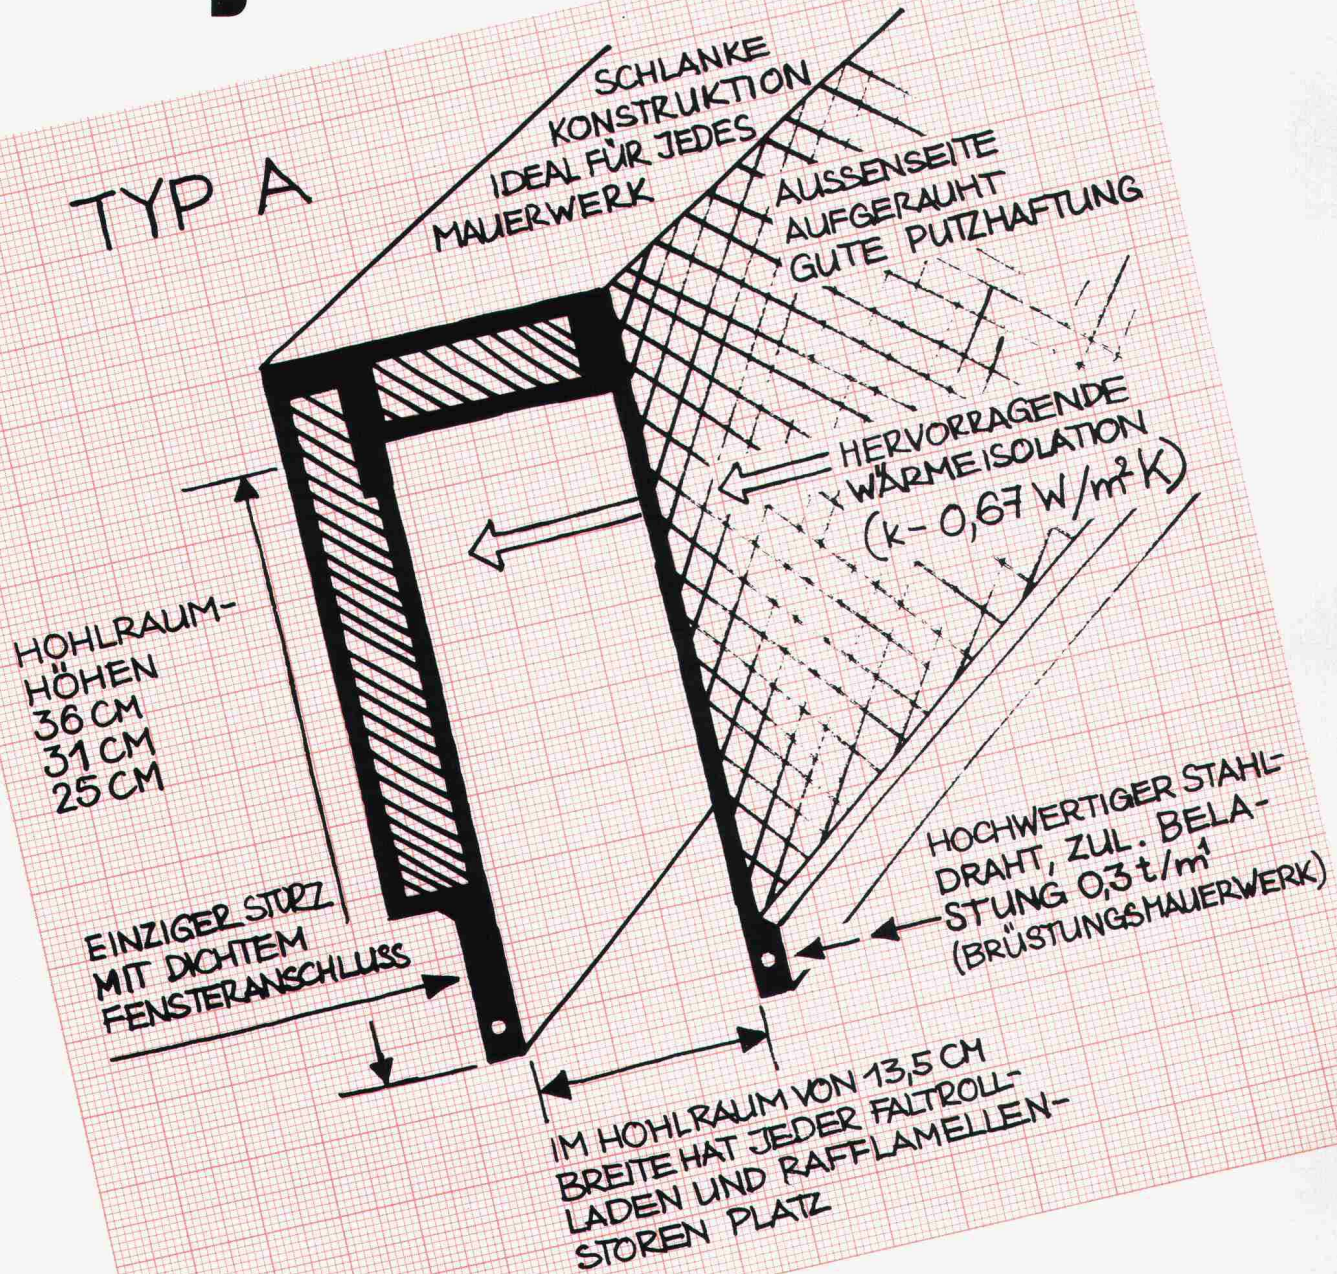 TYP A
SCHLANKE
KONSTRUKTION
IDEAL FÜR JEDES
MAUERWERK
AUSSENSEITE
AUFGERAUHT
GUTE PUTZHAFTUNG
HERVORRAGENDE
WÄRMEISOLATION
(k- 0,67 W/m² K)
HOHLRAUM-
HÖHEN
36 CM
31 CM
25 CM
EINZIGER STURZ
MIT DICHTEM
FENSTERANSCHLUSS
HOCHWERTIGER STAHL-
DRAHT, ZUL. BELA-
STUNG 0,3 t/m¹
(BRÜSTUNGSMAUERWERK)
IM HOHLRAUM VON 13,5 CM
BREITE HAT JEDER FALTROLL-
LADEN UND RAFFLAMELLEN-
STOREN PLATZ